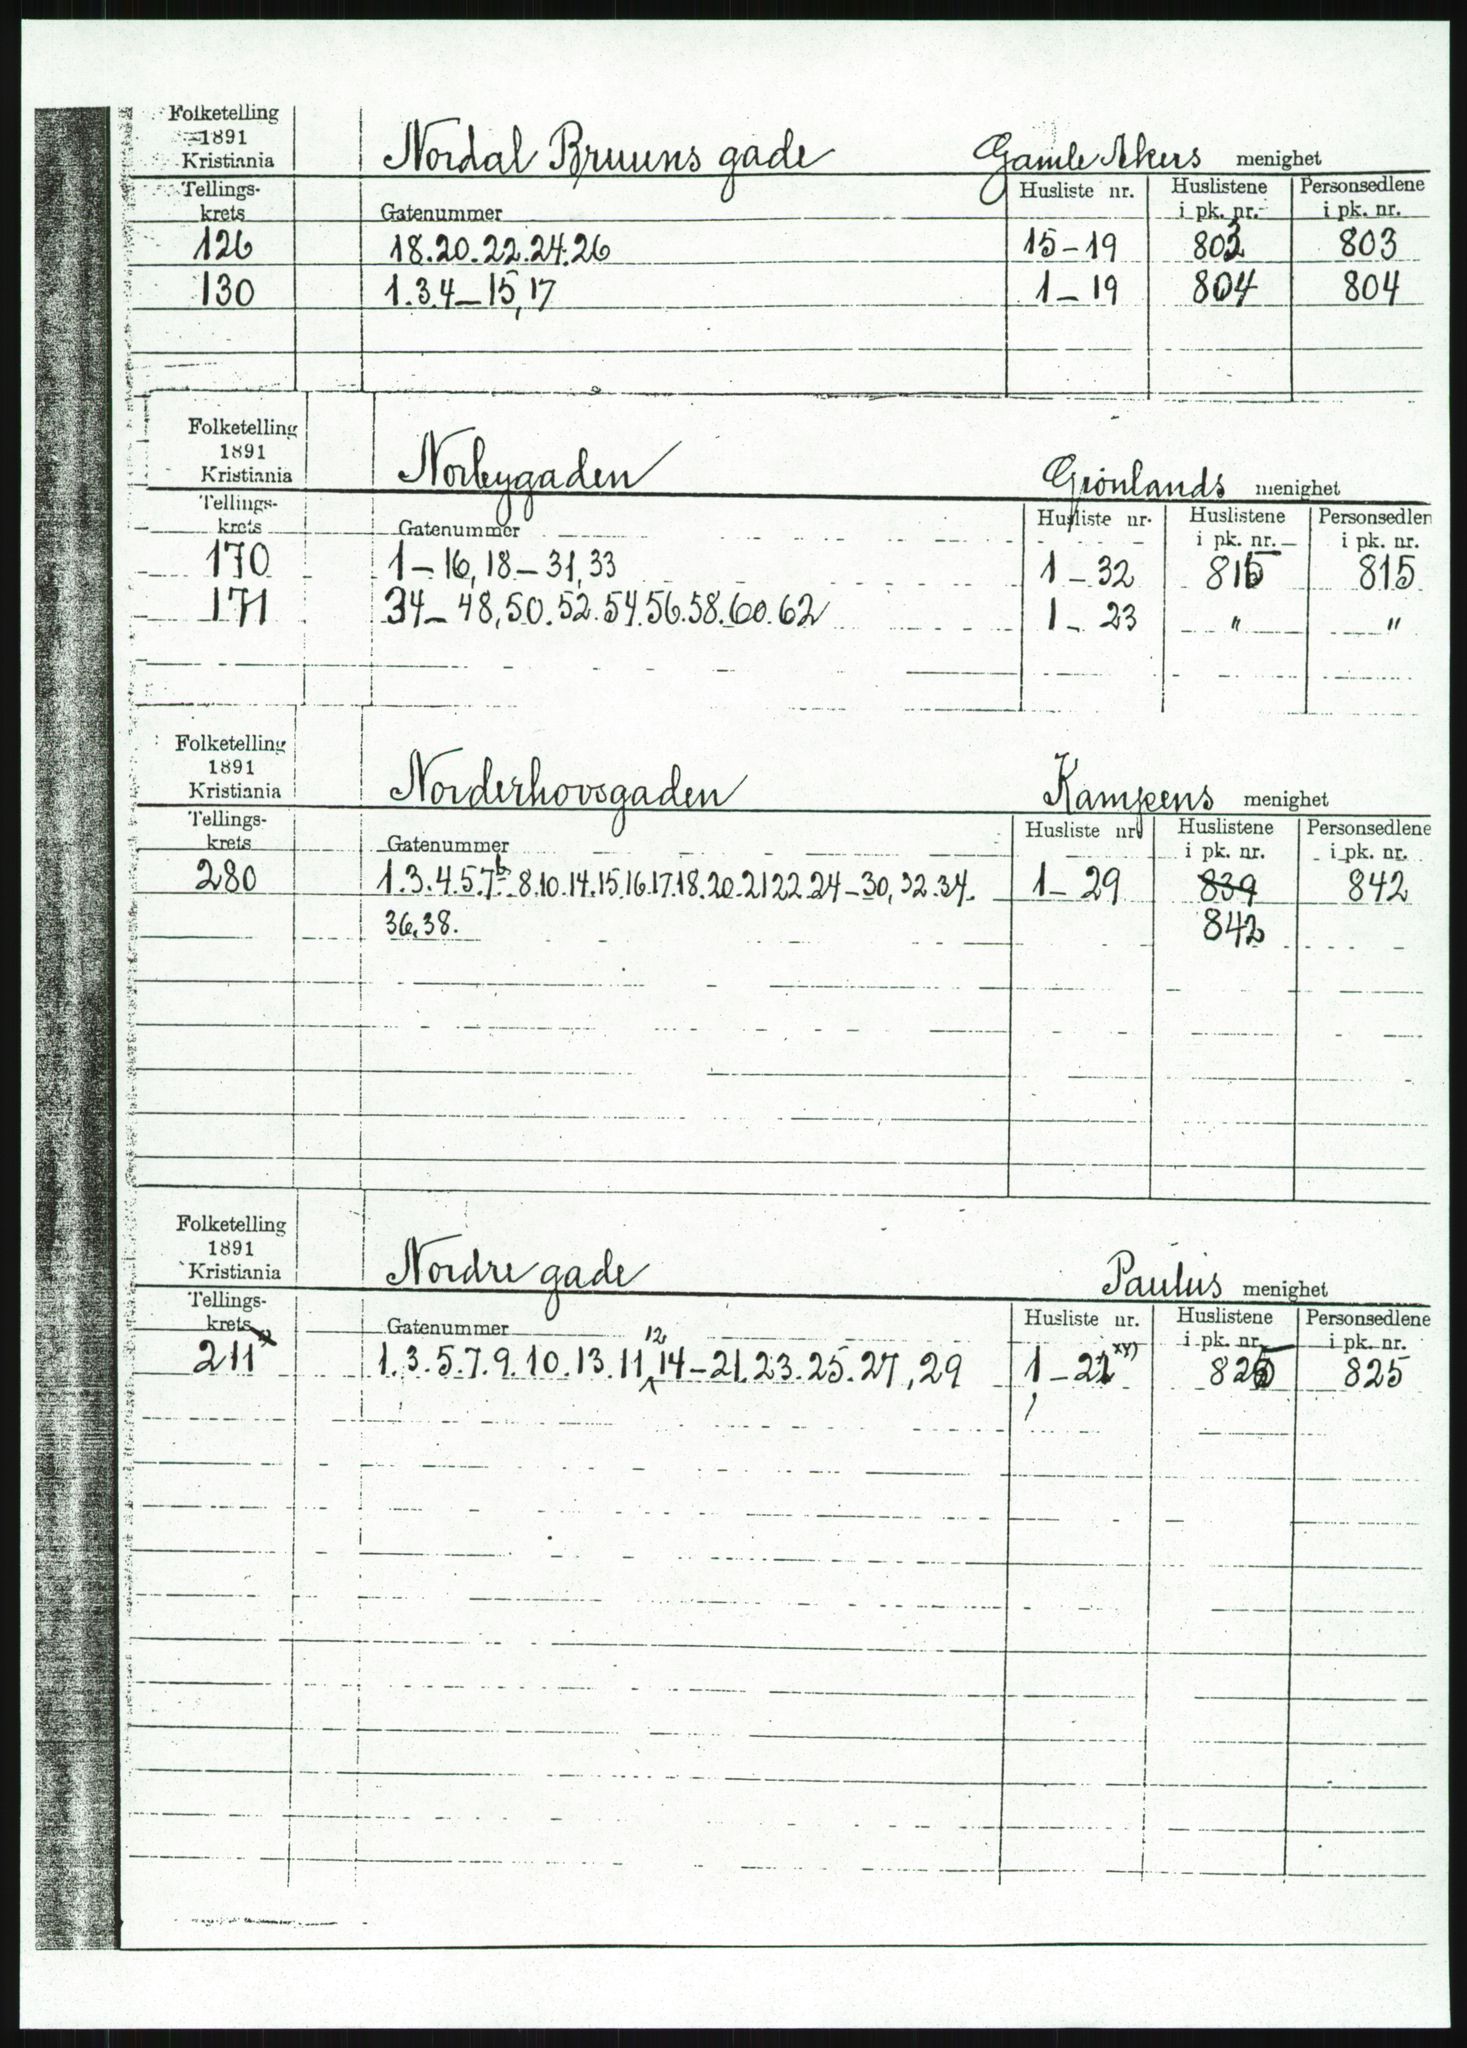 Folketelling
1891
Kristiania
Nordal Bruuns gade Gamle Akers menighet
Tellings-
krets Gatenummer Husliste nr. Huslistene i pk. nr. Personsedlene i pk. nr.
126 18.20.22.24.26 15-19 803 803
130 1.3.4-15,17 1-19 804 804
Folketelling
1891
Kristiania
Norbygaden Grønlands menighet
Tellings-
krets Gatenummer Husliste nr. Huslistene i pk. nr. Personsedlen i pk. nr.
170 1-16,18-31,33 1-32 815 815
171 34-48,50.52.54.56.58.60.62 1-23 " "
Folketelling
1891
Kristiania
Norderhovsgaden Kampens menighet
Tellings-
krets Gatenummer Husliste nr. Huslistene i pk. nr. Personsedlene i pk. nr.
280 1.3.4.5.7b.8.10.14.15.16.17.18.20.21 22.24-30,32.34. 1-29 839 842
36.38. 842
Folketelling
1891
Kristiania
Nordre gade Paulus menighet
Tellings-
krets Gatenummer Husliste nr. Huslistene i pk. nr. Personsedlene i pk. nr.
12
211 1.3.5.7.9.10.13.11 14-21.23.25.27,29 825 825